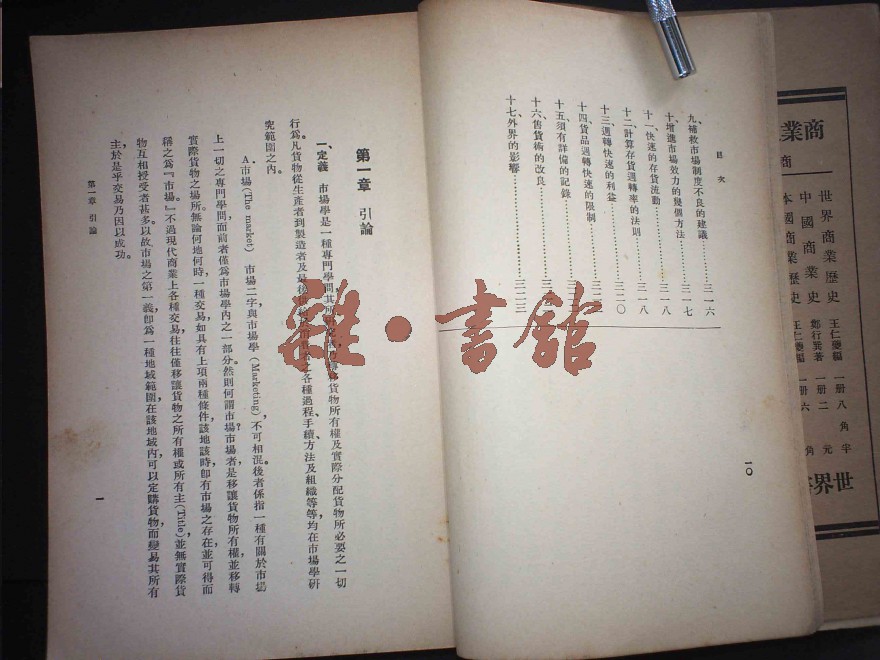 商業
商
世界商業歷史 王仁夔編 一册 八角半
中國商業史 鄭行巽著 一册 二元
本國商業歷史 王仁夔編 一册 六角
世界書
目次
九、補救市場制度不良的建議……三一六
十、增進市場效力的幾個方法……三一七
十一、快速的存貨流動……三一八
十二、計算存貨週轉率的法則……三一八
十三、週轉快速的利益……三二〇
十四、貨品週轉快速的限制
十五、須有詳備的記錄
十六、售貨術的改良
十七、外界的影響……三二三
一〇
第一章 引論
一、定義 市場學是一種專門學問其所 貨物所有權及實際分配貨物所必要之一切
行為。凡貨物從生產者到製造者及最後 者之各種過程、手續、方法及組織等等，均在市場學研
究範圍之內。
A.市場(The market) 市場二字與市場學(Marketing)，不可相混。後者係指一種有關於市場
上一切之專門學問，而前者僅為市場學內之一部分。然則何謂市場？市場者，是移讓貨物所有權，並移轉
實際貨物之場所。無論何地何時，一種交易，如具有上項兩種條件，該地該時，即有市場之存在，並可得而
稱之為『市場。』不過現代商業上各種交易，往往僅移讓貨物之所有權或所有主(Title)，並無實際貨
物互相授受者甚多。以故市場之第一義，即為一種地域範圍，在該地域內，可以定購貨物，而變易其所有
主，於是乎交易乃因以成功。
第一章 引論
一
雜·書館